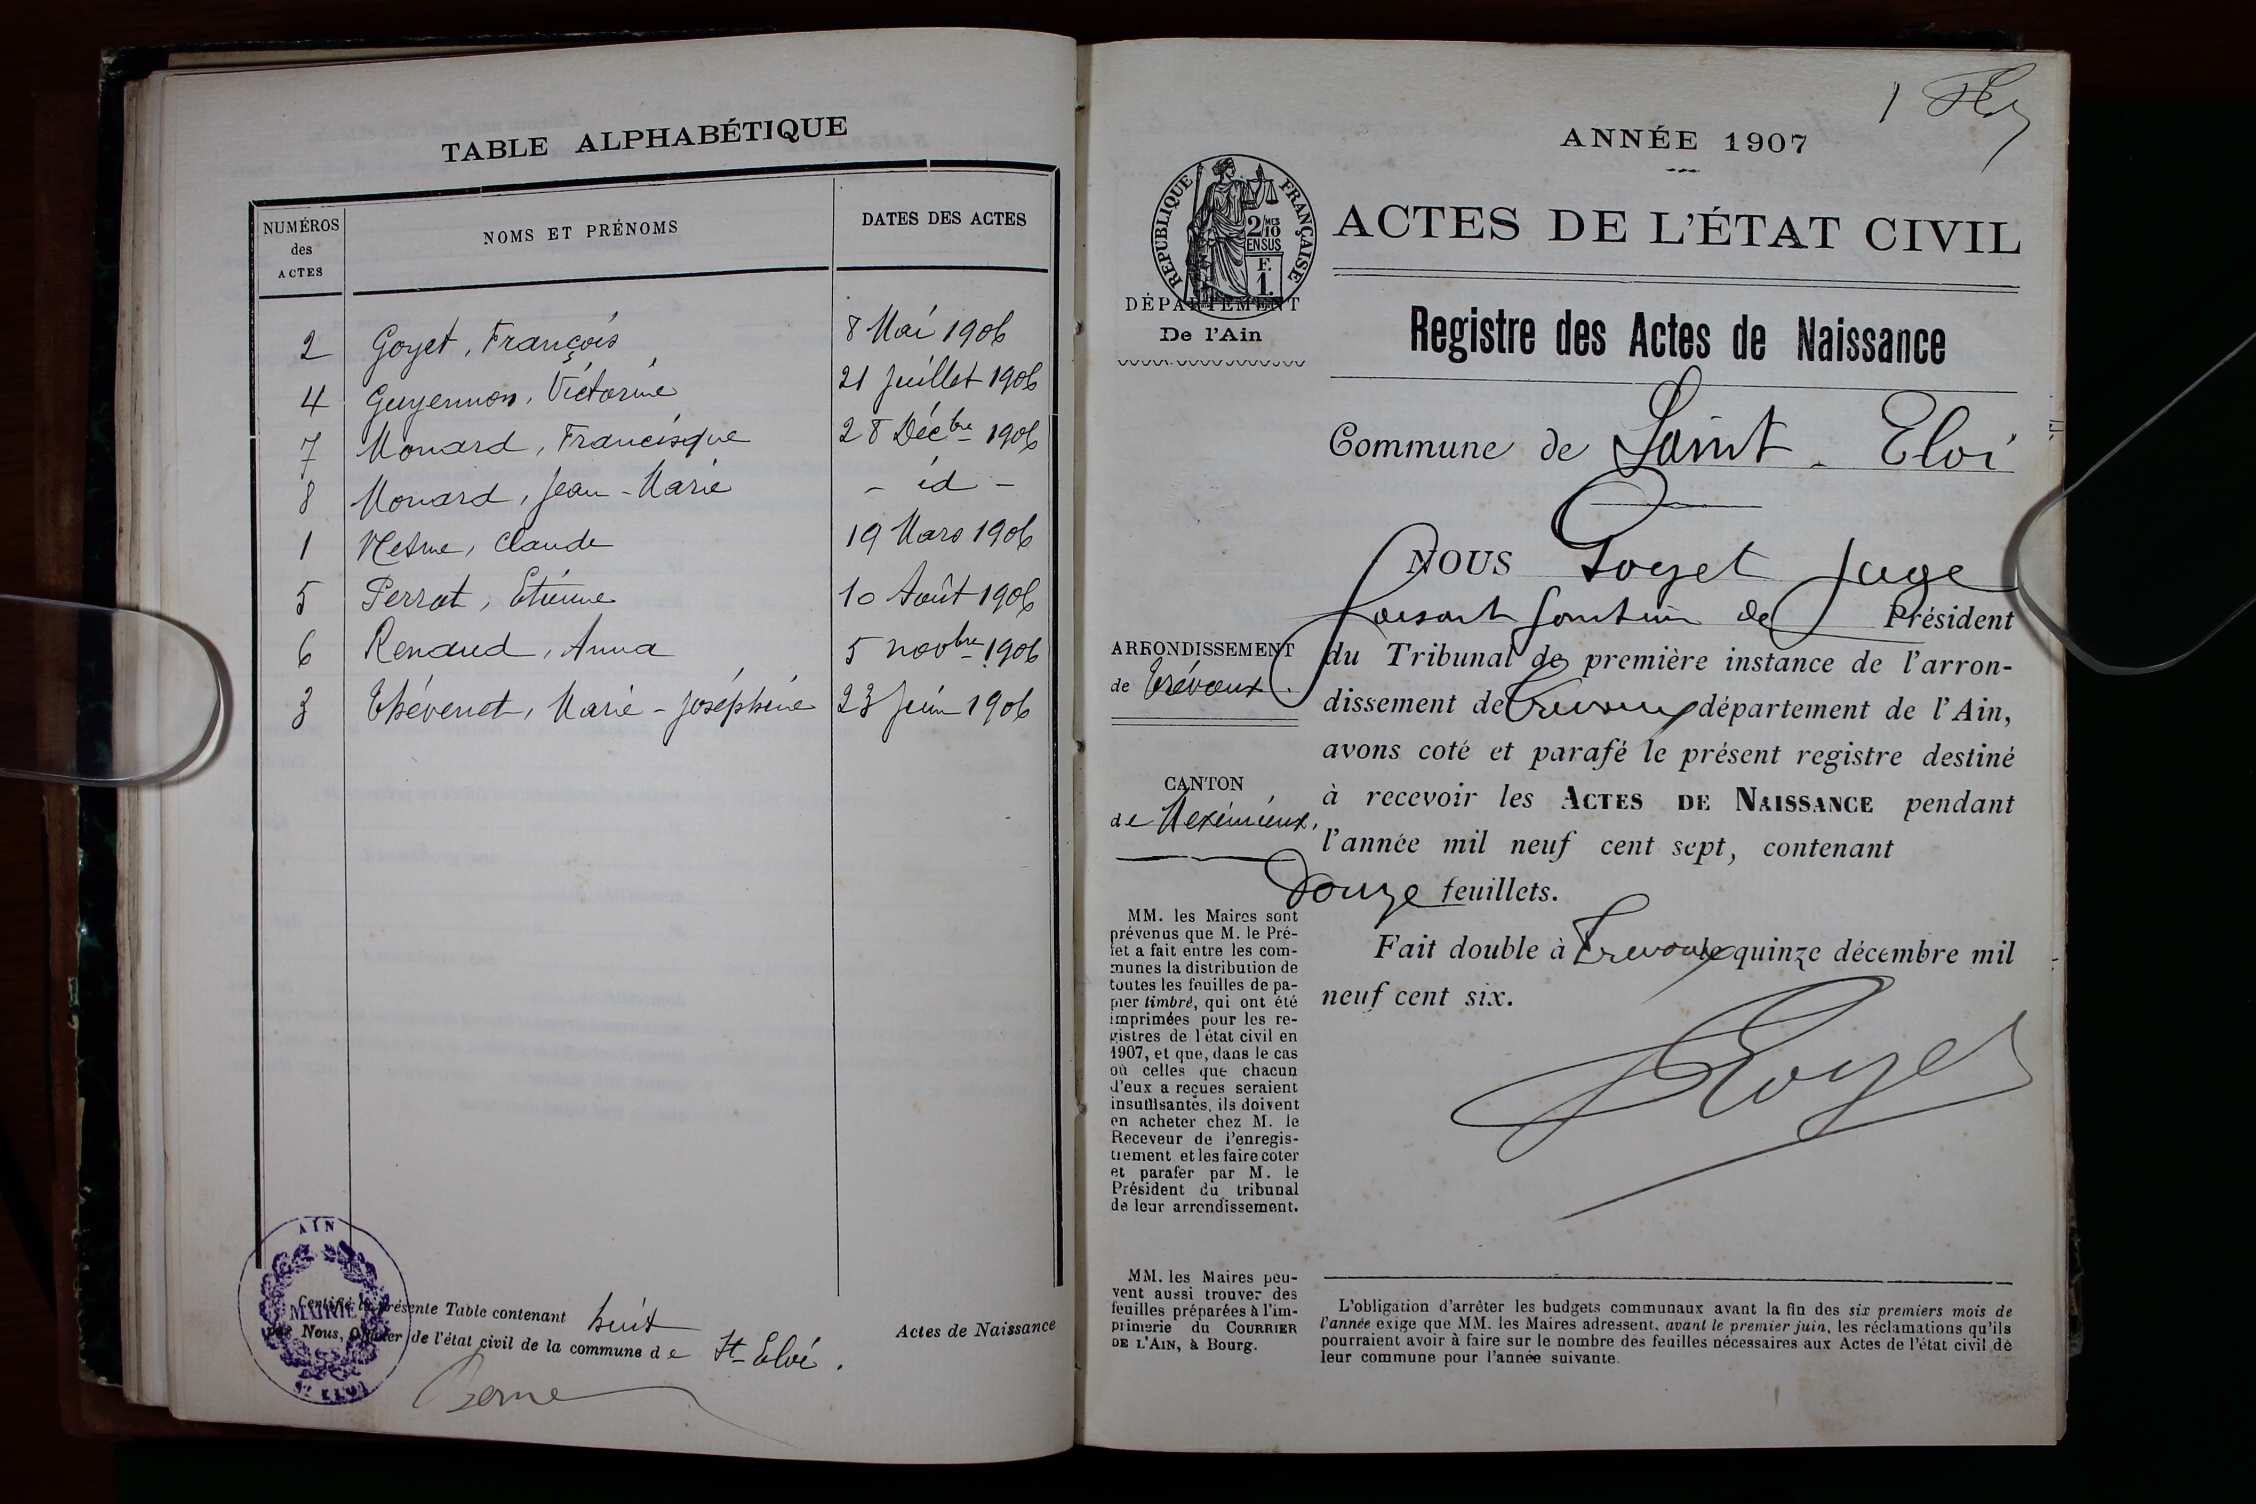 TABLE ALPHABÉTIQUE
NUMÉROS des ACTES
NOMS ET PRÉNOMS
DATES DES ACTES
2 Goyet, François 8 Mai 1906
4 Guyennon, Victorine 21 Juillet 1906
7 Monard, Francisque 28 Décbre 1906
8 Monard, Jean-Marie - id -
1 Mesme, Claude 19 Mars 1906
5 Perrat, Etienne 10 Août 1906
6 Renaud, Anna 5 novbre 1906
3 Thévenet, Marie-Joséphine 23 Juin 1906
AIN
MAIRIE
ST ELOI
Certifié la présente Table contenant huit Actes de Naissance
par Nous, Officier de l'état civil de la commune de St Eloi.
1
ANNÉE 1907
RÉPUBLIQUE FRANÇAISE
2/10 MES
EN SUS
F.
1.
ACTES DE L'ÉTAT CIVIL
DÉPARTEMENT
De l'Ain
Registre des Actes de Naissance
Commune de Saint-Eloi
NOUS Goyet Juge
faisant fonction de Président
ARRONDISSEMENT
de Trévoux.
du Tribunal de première instance de l'arron-
dissement de Trevoux département de l'Ain,
avons coté et parafé le présent registre destiné
à recevoir les ACTES DE NAISSANCE pendant
l'année mil neuf cent sept, contenant
douze feuillets.
Fait double à Trevoux le quinze décembre mil
neuf cent six.
Goyet
CANTON
de Meximieux,
MM. les Maires sont
prévenus que M. le Pré-
fet a fait entre les com-
munes la distribution de
toutes les feuilles de pa-
pier timbré, qui ont été
imprimées pour les re-
gistres de l'état civil en
1907, et que, dans le cas
où celles que chacun
d'eux a reçues seraient
insuffisantes, ils doivent
en acheter chez M. le
Receveur de l'enregis-
trement et les faire coter
et parafer par M. le
Président du tribunal
de leur arrondissement.
MM. les Maires peu-
vent aussi trouver des
feuilles préparées à l'im-
primerie du COURRIER
DE L'AIN, à Bourg.
L'obligation d'arrêter les budgets communaux avant la fin des six premiers mois de
l'année exige que MM. les Maires adressent, avant le premier juin, les réclamations qu'ils
pourraient avoir à faire sur le nombre des feuilles nécessaires aux Actes de l'état civil de
leur commune pour l'année suivante.